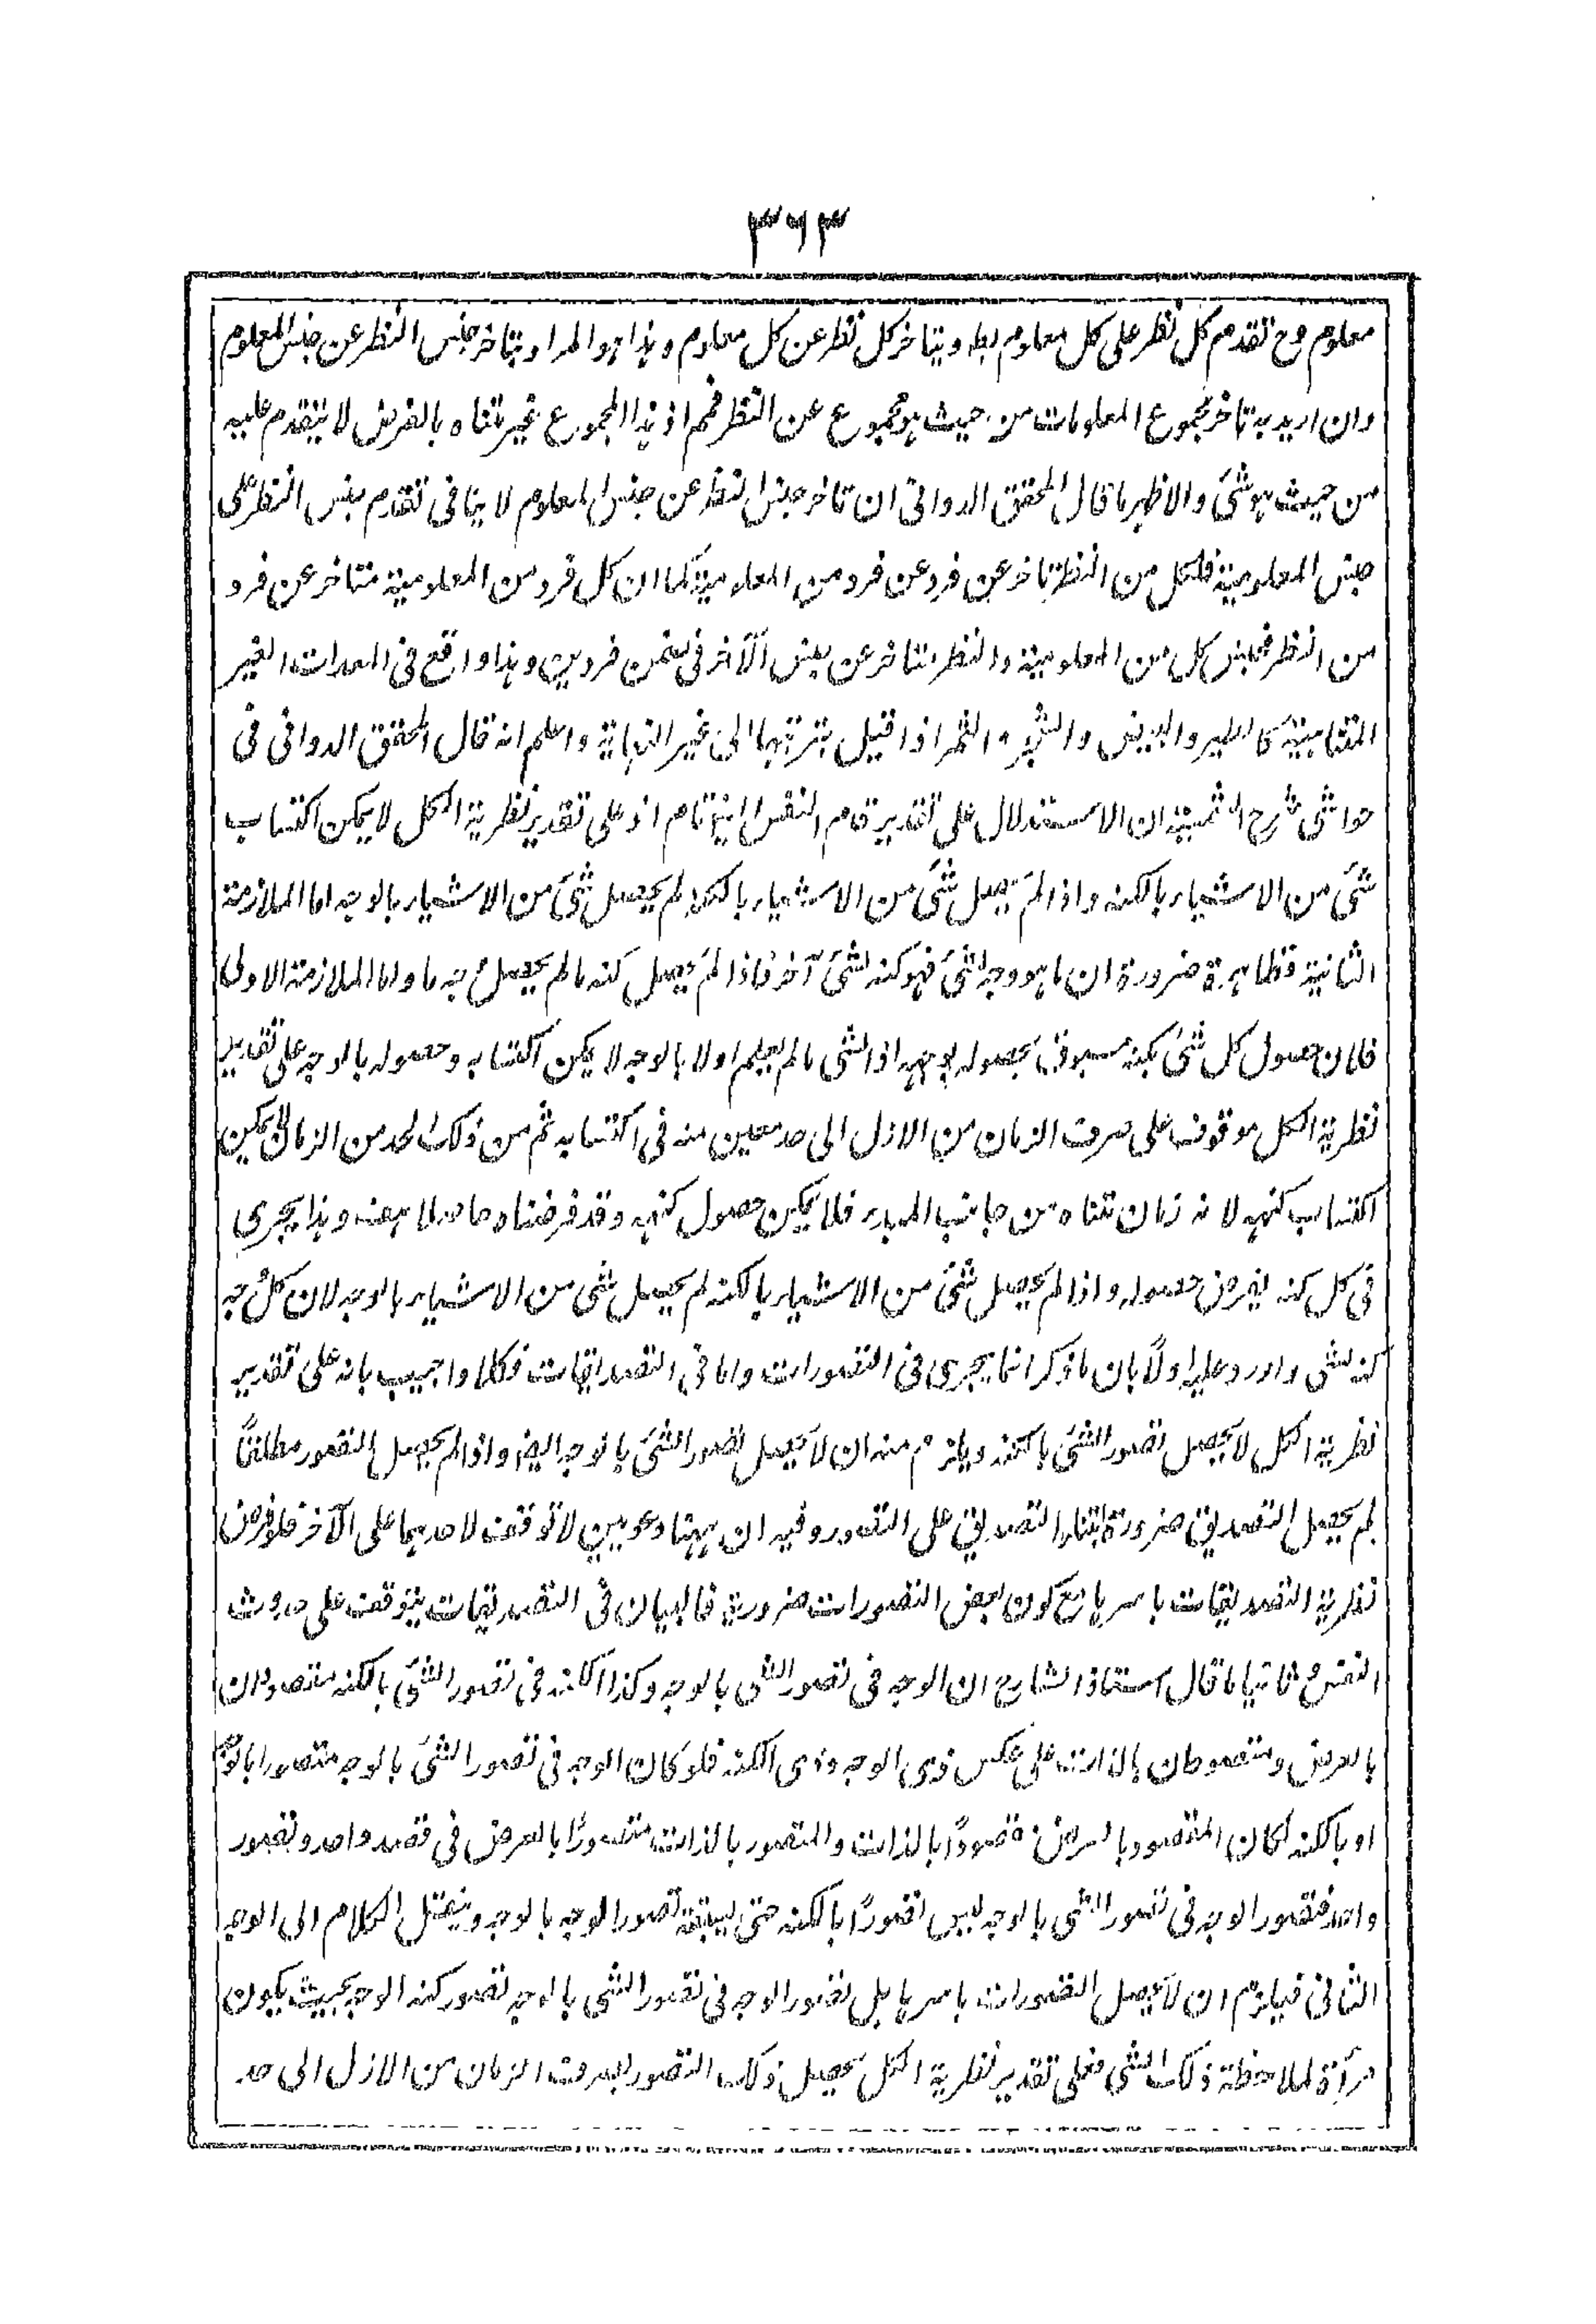 ۳۶۳
معلوم وح تقدم كل نظر على كل معلوم بعده ويتاخر كل نظر عن كل معلوم وهذا هو المراد ويتاخر جنس النظر عن جنس المعلوم
وان اريد به تاخر مجموع المعلومات من حيث هو مجموع عن النظر فمم اذ هذا المجموع غير متناه بالفرض لا يتقدم عليه
من حيث هو شئ والاظهر ما قال المحقق الدوانى ان تاخر جنس النظر عن جنس المعلوم لا ينافى تقدم جنس النظر على
جنس المعلومية فلكل من النظر تاخر عن فرد عن فرد من المعلومية كما ان كل فرد من المعلومية متاخر عن فرد
من النظر فجنس كل من المعلومية والنظر متاخر عن جنس الآخر فى ضمن فردين وهذا واقع فى المعدات الغير
المتناهية كالطير والبيض والشجر والثمر اذا قيل بترتبها الى غير النهاية واعلم انه قال المحقق الدوانى فى
حواشى شرح الشمسية ان الاستدلال على تقدير قدم النفس ايضا تام اذ على تقدير نظرية الكل لا يمكن اكتساب
شئ من الاشياء بالكنه واذا لم يحصل شئ من الاشياء بالكنه لم يحصل شئ من الاشياء بالوجه اما الملازمة
الثانية فظاهرة ضرورة ان ما هو وجه لشئ فهو كنه لشئ آخر فاذا لم يحصل كنه ما لم يحصل وجه ما واما الملازمة الاولى
فلان حصول كل شئ بكنهه مسبوق بحصوله بوجهه اذ الشى ما لم يعلم اولا بالوجه لا يمكن اكتسابه وحصوله بالوجه على تقدير
نظرية الكل موقوف على صرف الزمان من الازل الى حد معين منه فى اكتسابه ثم من ذلك الحد من الزمان لا يمكن
اكتساب كنهه لانه زمان متناه من جانب المبدء فلا يمكن حصول كنهه وقد فرضناه حاصلا هف وهذا يجرى
فى كل كنه يفرض حصوله واذا لم يحصل شئ من الاشياء بالكنه لم يحصل شى من الاشياء بالوجه لان كل وجه
كنه لشى واورد عليه اولًا بان ما ذكر انما يجرى فى التصورات واما فى التصديقات فكلا واجيب بانه على تقدير
نظرية الكل لا يحصل تصور الشئ بالكنه ويلزم منه ان لا يحصل تصور الشئ بالوجه ايضا واذا لم يحصل التصور مطلقًا
لم يحصل التصديق ضرورة ابتناء التصديق على التصور وفيه ان ههنا دعويين لا توقف لاحدهما على الآخر فلو فرض
نظرية التصديقات باسرها مع كون بعض التصورات ضرورية فالبيان فى التصديقات يتوقف على حدوث
النفس وثانيا ما قال استاذ الشارح ان الوجه فى تصور الشى بالوجه وكذا الكنه فى تصور الشئ بالكنه متصوران
بالعرض ومقصودان بالذات على عكس ذى الوجه وذى الكنه فلو كان الوجه فى تصور الشئ بالوجه متصورا بالوجه
او بالكنه لكان المقصود بالعرض مقصودًا بالذات والمتصور بالذات متصورًا بالعرض فى قصد واحد وتصور
واحد فتصور الوجه فى تصور الشى بالوجه ليس تصورًا بالكنه حتى يسابقه تصور الوجه بالوجه وينتقل الكلام الى الوجه
الثانى فيلزم ان لا يحصل التصورات باسرها بل تصور الوجه فى تصور الشى بالوجه تصور كنه الوجه بحيث يكون
مرآة لملاحظة ذلك الشى فعلى تقدير نظرية الكل يحصل ذلك التصور بصرف الزمان من الازل الى حد